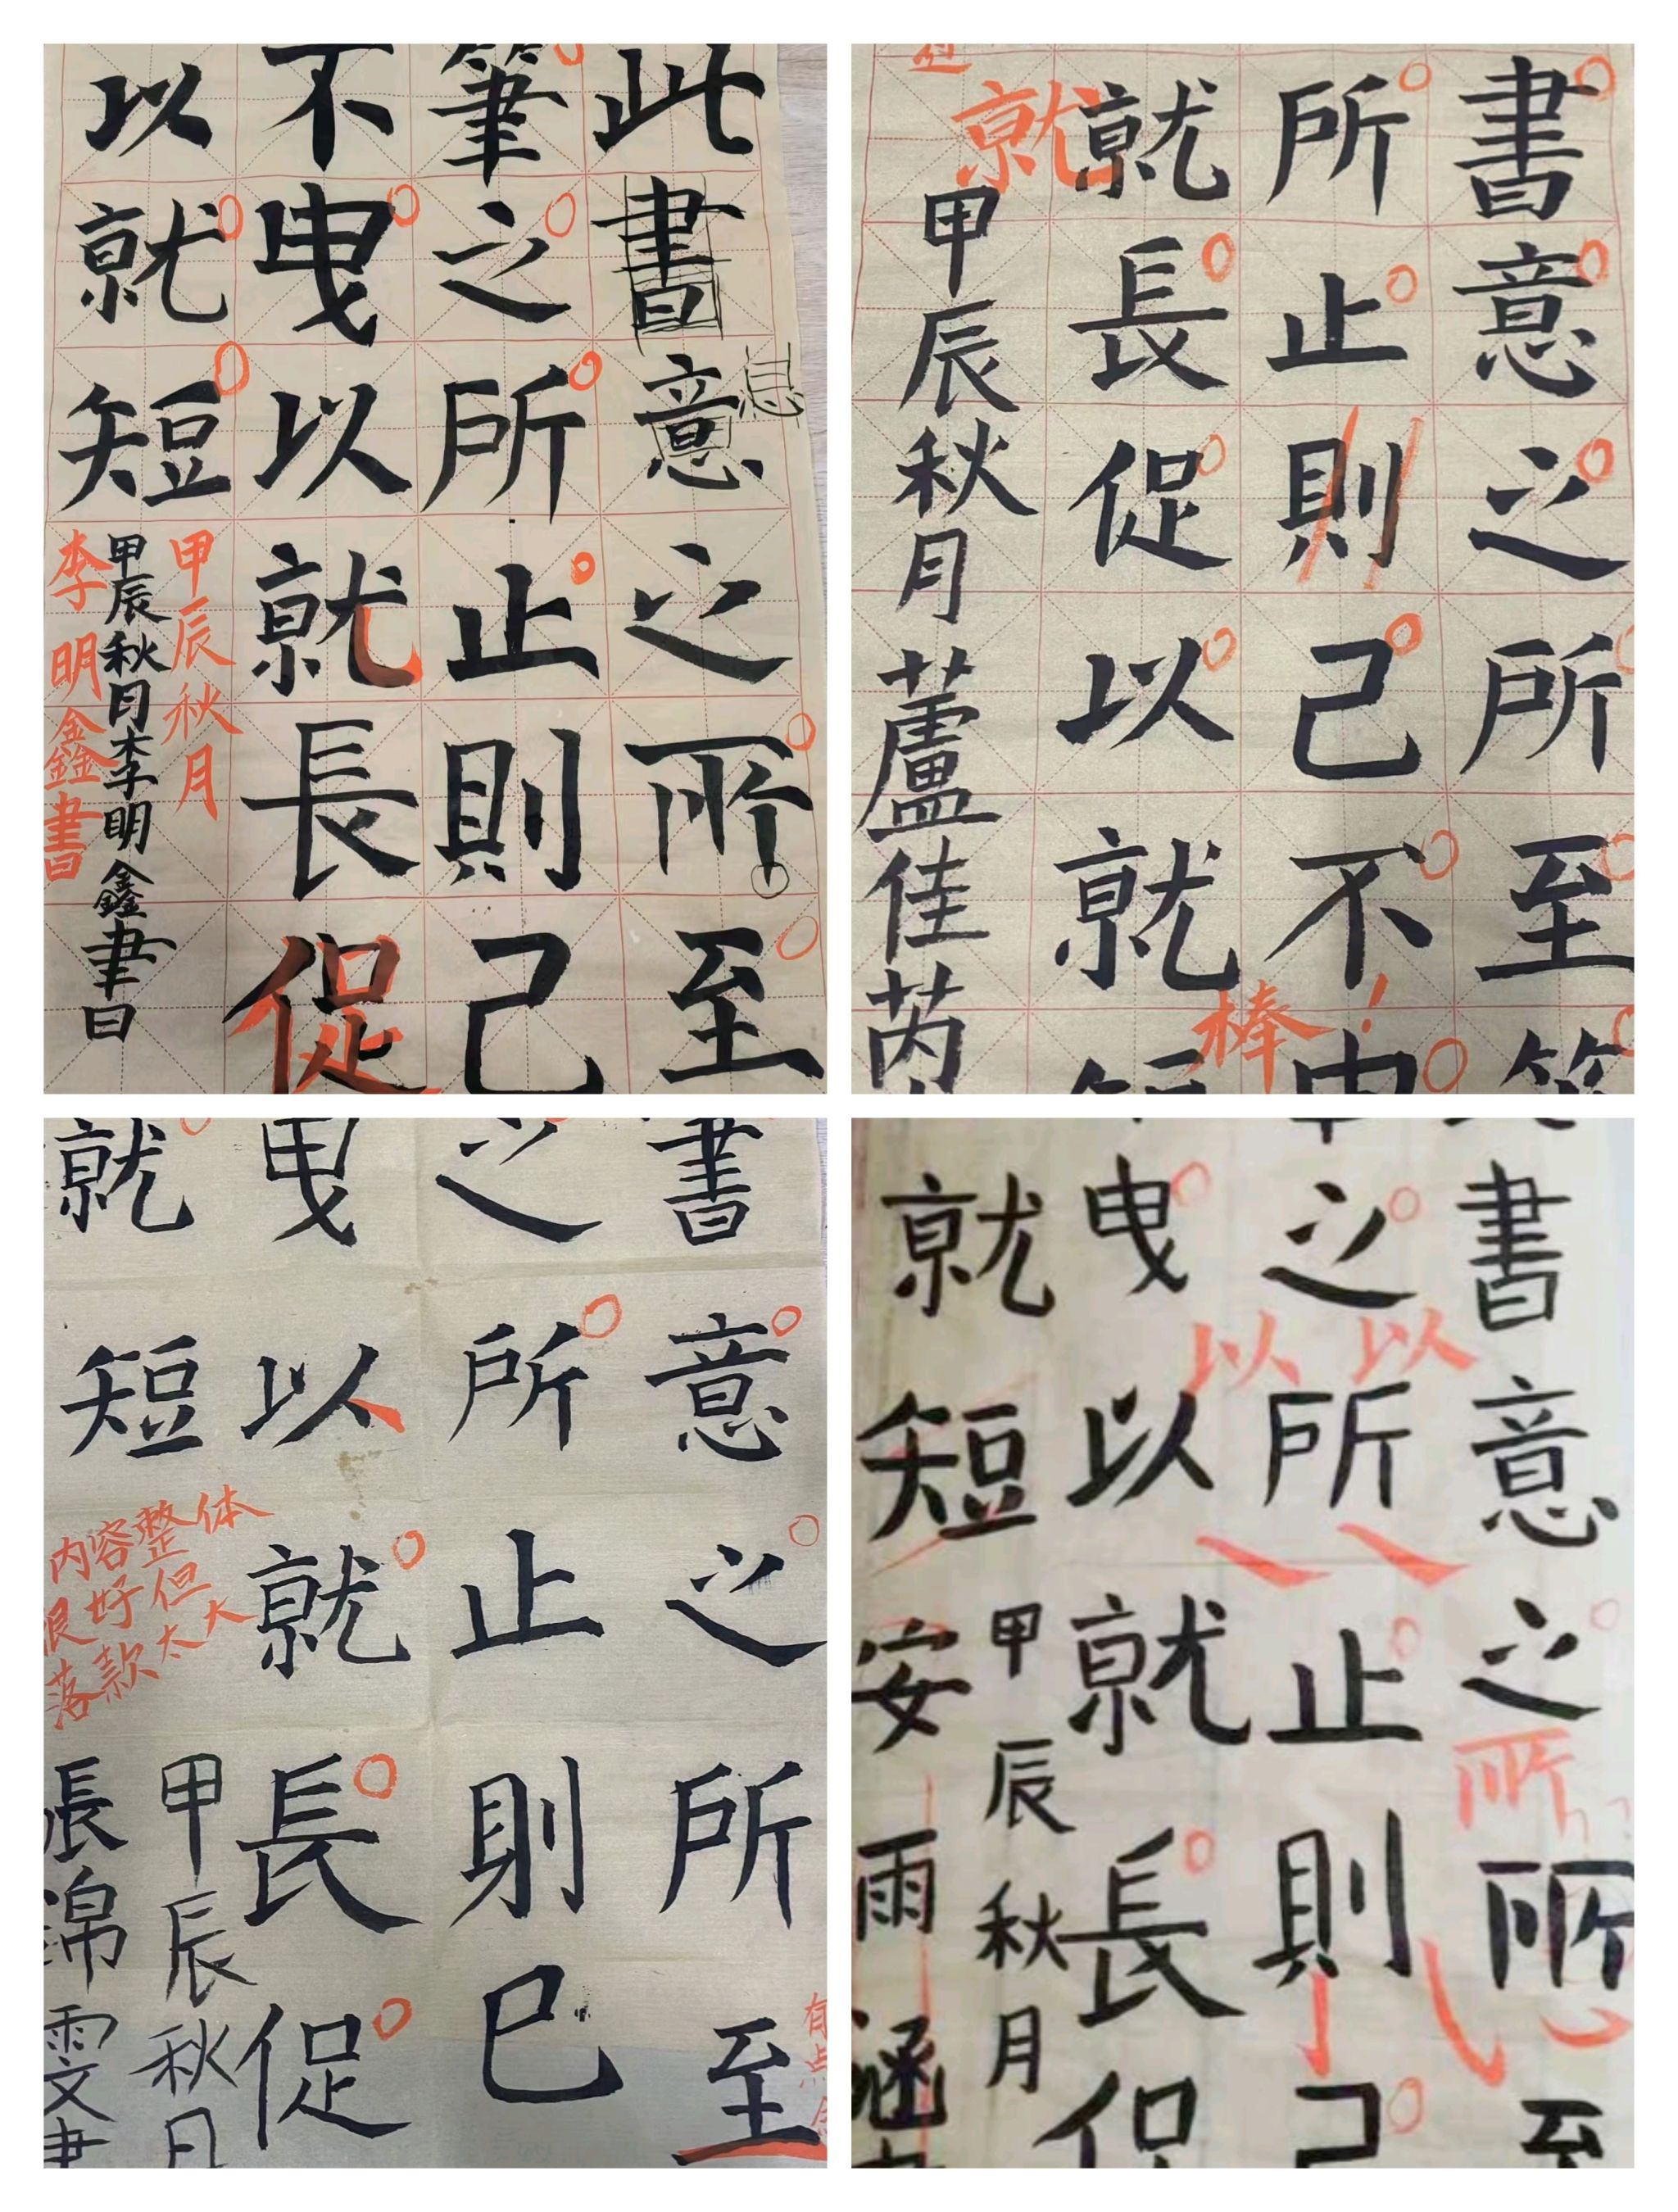 此書意之所至
筆之所止則己
不曳以就長促
以就短
甲辰秋月李明鑫書
甲辰秋月
李明鑫書
書意之所至
所止則己不
就長促以就
就
甲辰秋月蘆佳芮
棒！
書意之所至
之所止則巳
曳以就長促
就短
内容整体
很好但
落款太大
甲辰秋月
張錦雯書
有点
書意之所至
所
之所止則己
曳以就長促
以以
就短
甲辰秋月
安雨涵